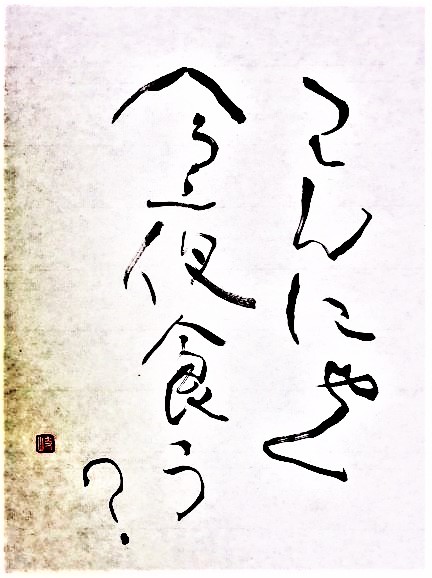 こんにゃく
今夜食う
?